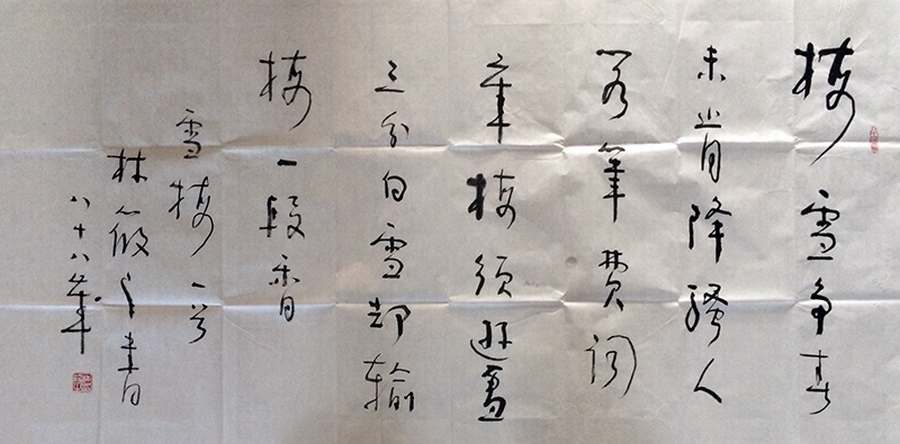 梅雪争春
未肯降骚人
阁笔费词
章梅须逊雪
三分白雪却输
梅一段香
雪梅一首
林筱之书
八十八年